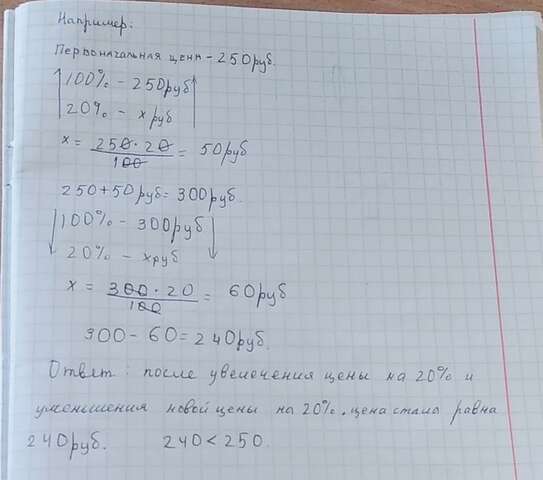 Например:
Первоначальная цена - 250руб.
100% - 250руб
20% - x руб
x = 250·20 / 100 = 50руб
250+50руб = 300руб.
100% - 300руб
20% - xруб
x = 300·20 / 100 = 60руб
300 - 60 = 240руб.
Ответ: после увелечения цены на 20% и
уменьшения новой цены на 20%, цена стала равна
240руб. 240 < 250.